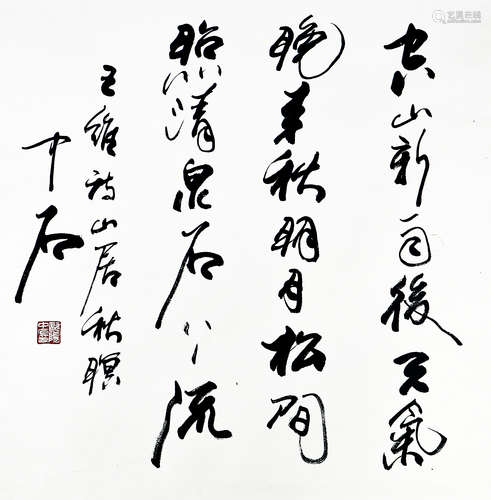 空山新雨後天氣
晚来秋明月松間
照清泉石上流
王維詩山居秋暝
中石